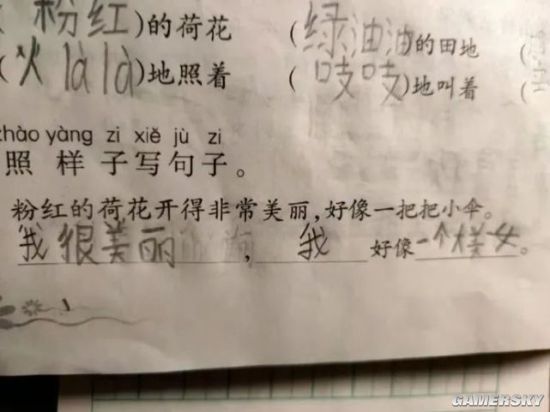 (粉红)的荷花 (绿油油)的田地 (
(火là là)地照着 (吱吱)地叫着 (
zhào yàng zi xiě jù zi
照样子写句子。
粉红的荷花开得非常美丽,好像一把把小伞。
我很美丽,我好像一个美女。
GAMERSKY